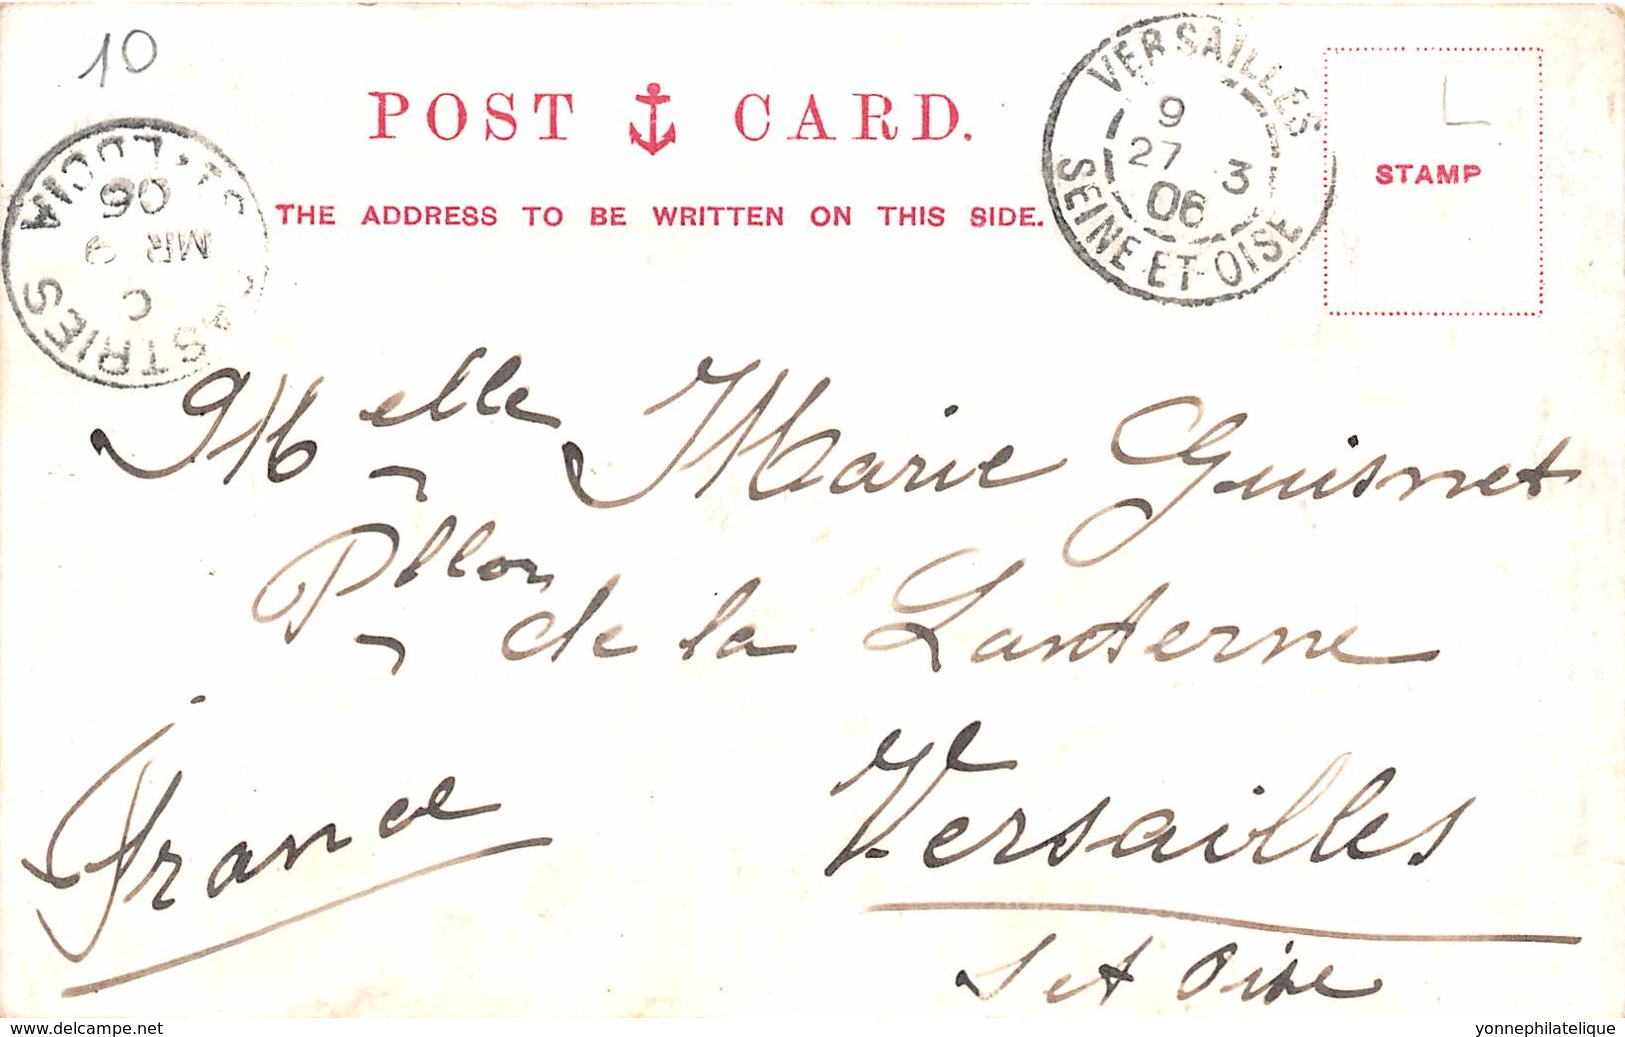 10
POST CARD.
THE ADDRESS TO BE WRITTEN ON THIS SIDE.
STAMP
VERSAILLES
9
27 3
06
SEINE-ET-OISE
CASTRIES
C
MR 9
06
ST. LUCIA
Melle Marie Guisnet
Pllon de la Lanterne
Versailles
S et Oise
France
www.delcampe.net
yonnephilatelique